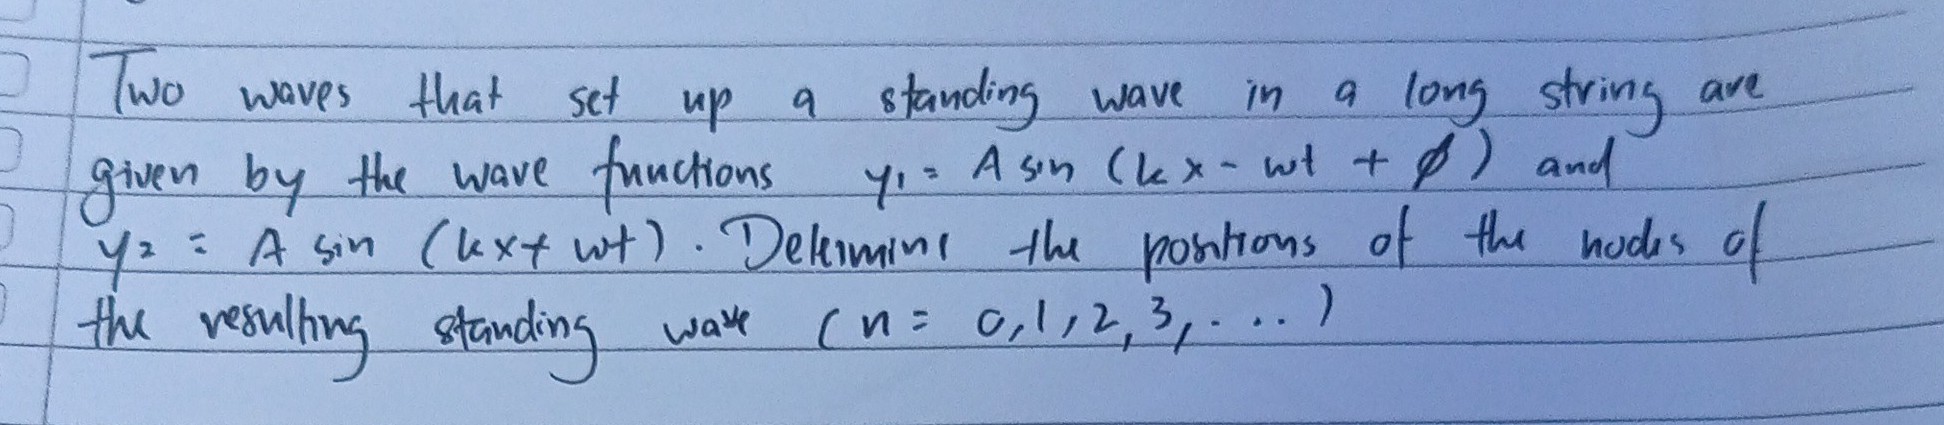 Two waves that set up a standing wave in a long string are
given by the wave functions y₁ = A sin (kx - wt + ϕ) and
y₂ = A sin (kx + wt). Determine the positions of the nodes of
the resulting standing wave (n = 0,1,2,3,...)